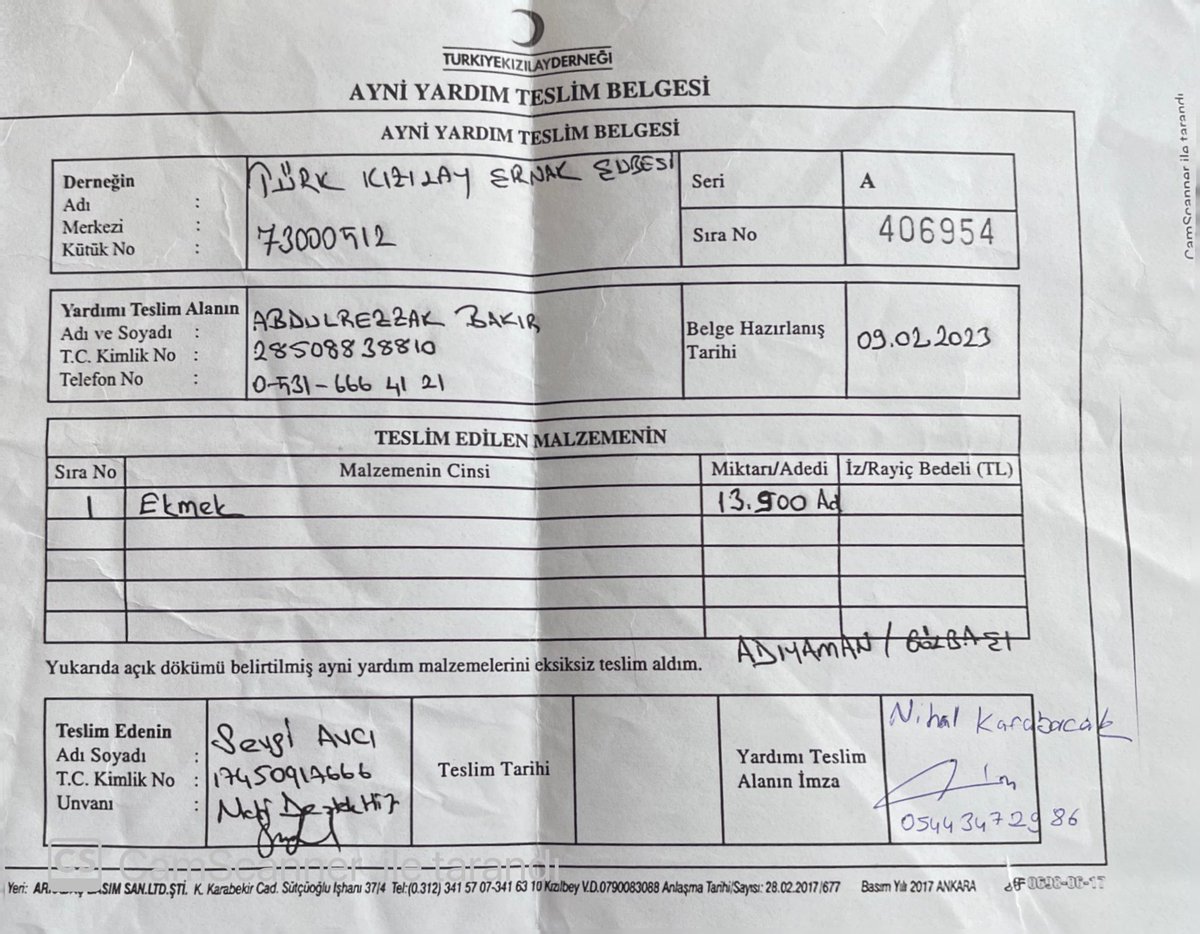 TÜRKİYEKIZILAYDERNEĞİ
AYNİ YARDIM TESLİM BELGESİ
AYNİ YARDIM TESLİM BELGESİ
Derneğin
Adı :
Merkezi :
Kütük No :
TÜRK KIZILAY ERNAK ŞUBESİ
73000512
Seri A
Sıra No 406954
Yardımı Teslim Alanın
Adı ve Soyadı : ABDULREZZAK BAKIR
T.C. Kimlik No : 28508838810
Telefon No : 0-531-666 41 21
Belge Hazırlanış
Tarihi
09.02.2023
TESLİM EDİLEN MALZEMENİN
Sıra No Malzemenin Cinsi Miktarı/Adedi İz/Rayiç Bedeli (TL)
1 Ekmek 13.900 Ad
ADIYAMAN / GÖLBAŞI
Yukarıda açık dökümü belirtilmiş ayni yardım malzemelerini eksiksiz teslim aldım.
Teslim Edenin
Adı Soyadı : Sevgi AVCI
T.C. Kimlik No : 17450917666
Unvanı :
Teslim Tarihi
Yardımı Teslim
Alanın İmza
Nihal Karabacak
0544 347 29 86
CS CamScanner ile tarandı
Yeri: SIM SAN.LTD.ŞTİ. K. Karabekir Cad. Sütçüoğlu İşhanı 37/4 Tel:(0.312) 341 57 07-341 63 10 Kızılbey V.D.0790083088 Anlaşma Tarihi/Sayısı: 28.02.2017/677 Basım Yılı 2017 ANKARA
CamScanner ile tarandı